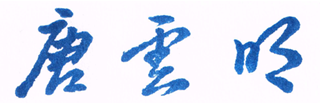 唐雲明